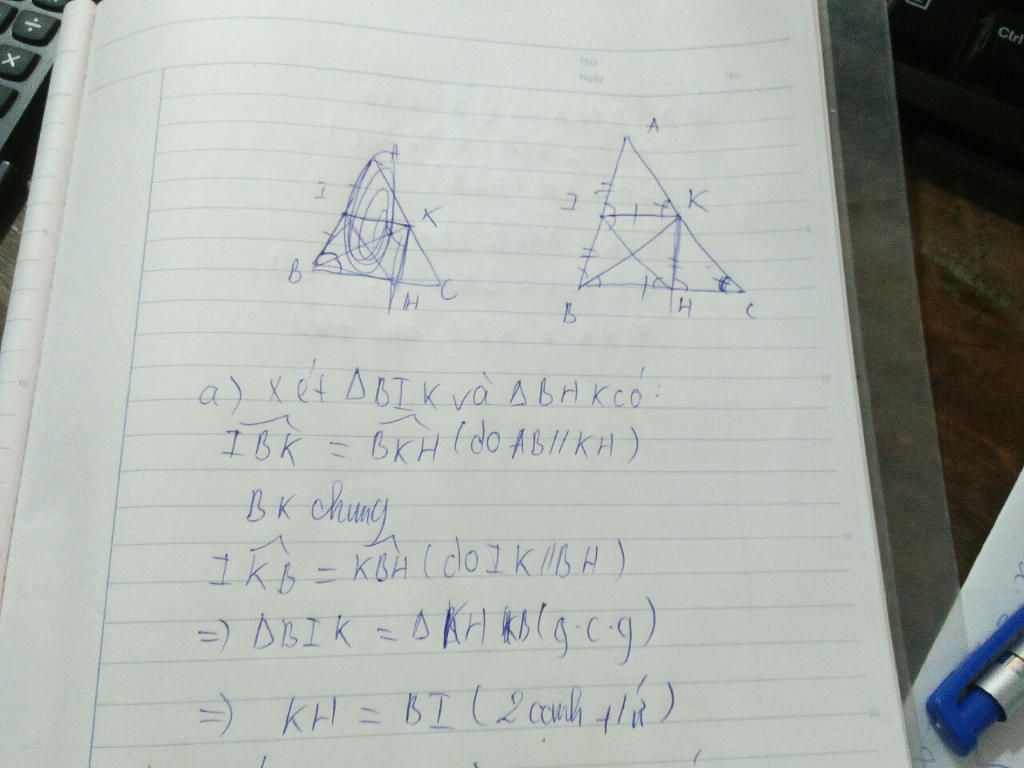 ÷
×
Ctrl
Thứ
Ngày
No.
A
I
K
B
H
C
A
I
K
B
H
C
a) Xét ΔBIK và ΔBHK có:
IBK = BKH (do AB//KH)
BK chung
IKB = KBH (do IK//BH)
=) ΔBIK = ΔKHB (g.c.g)
=) KH = BI (2 cạnh t/ứ)